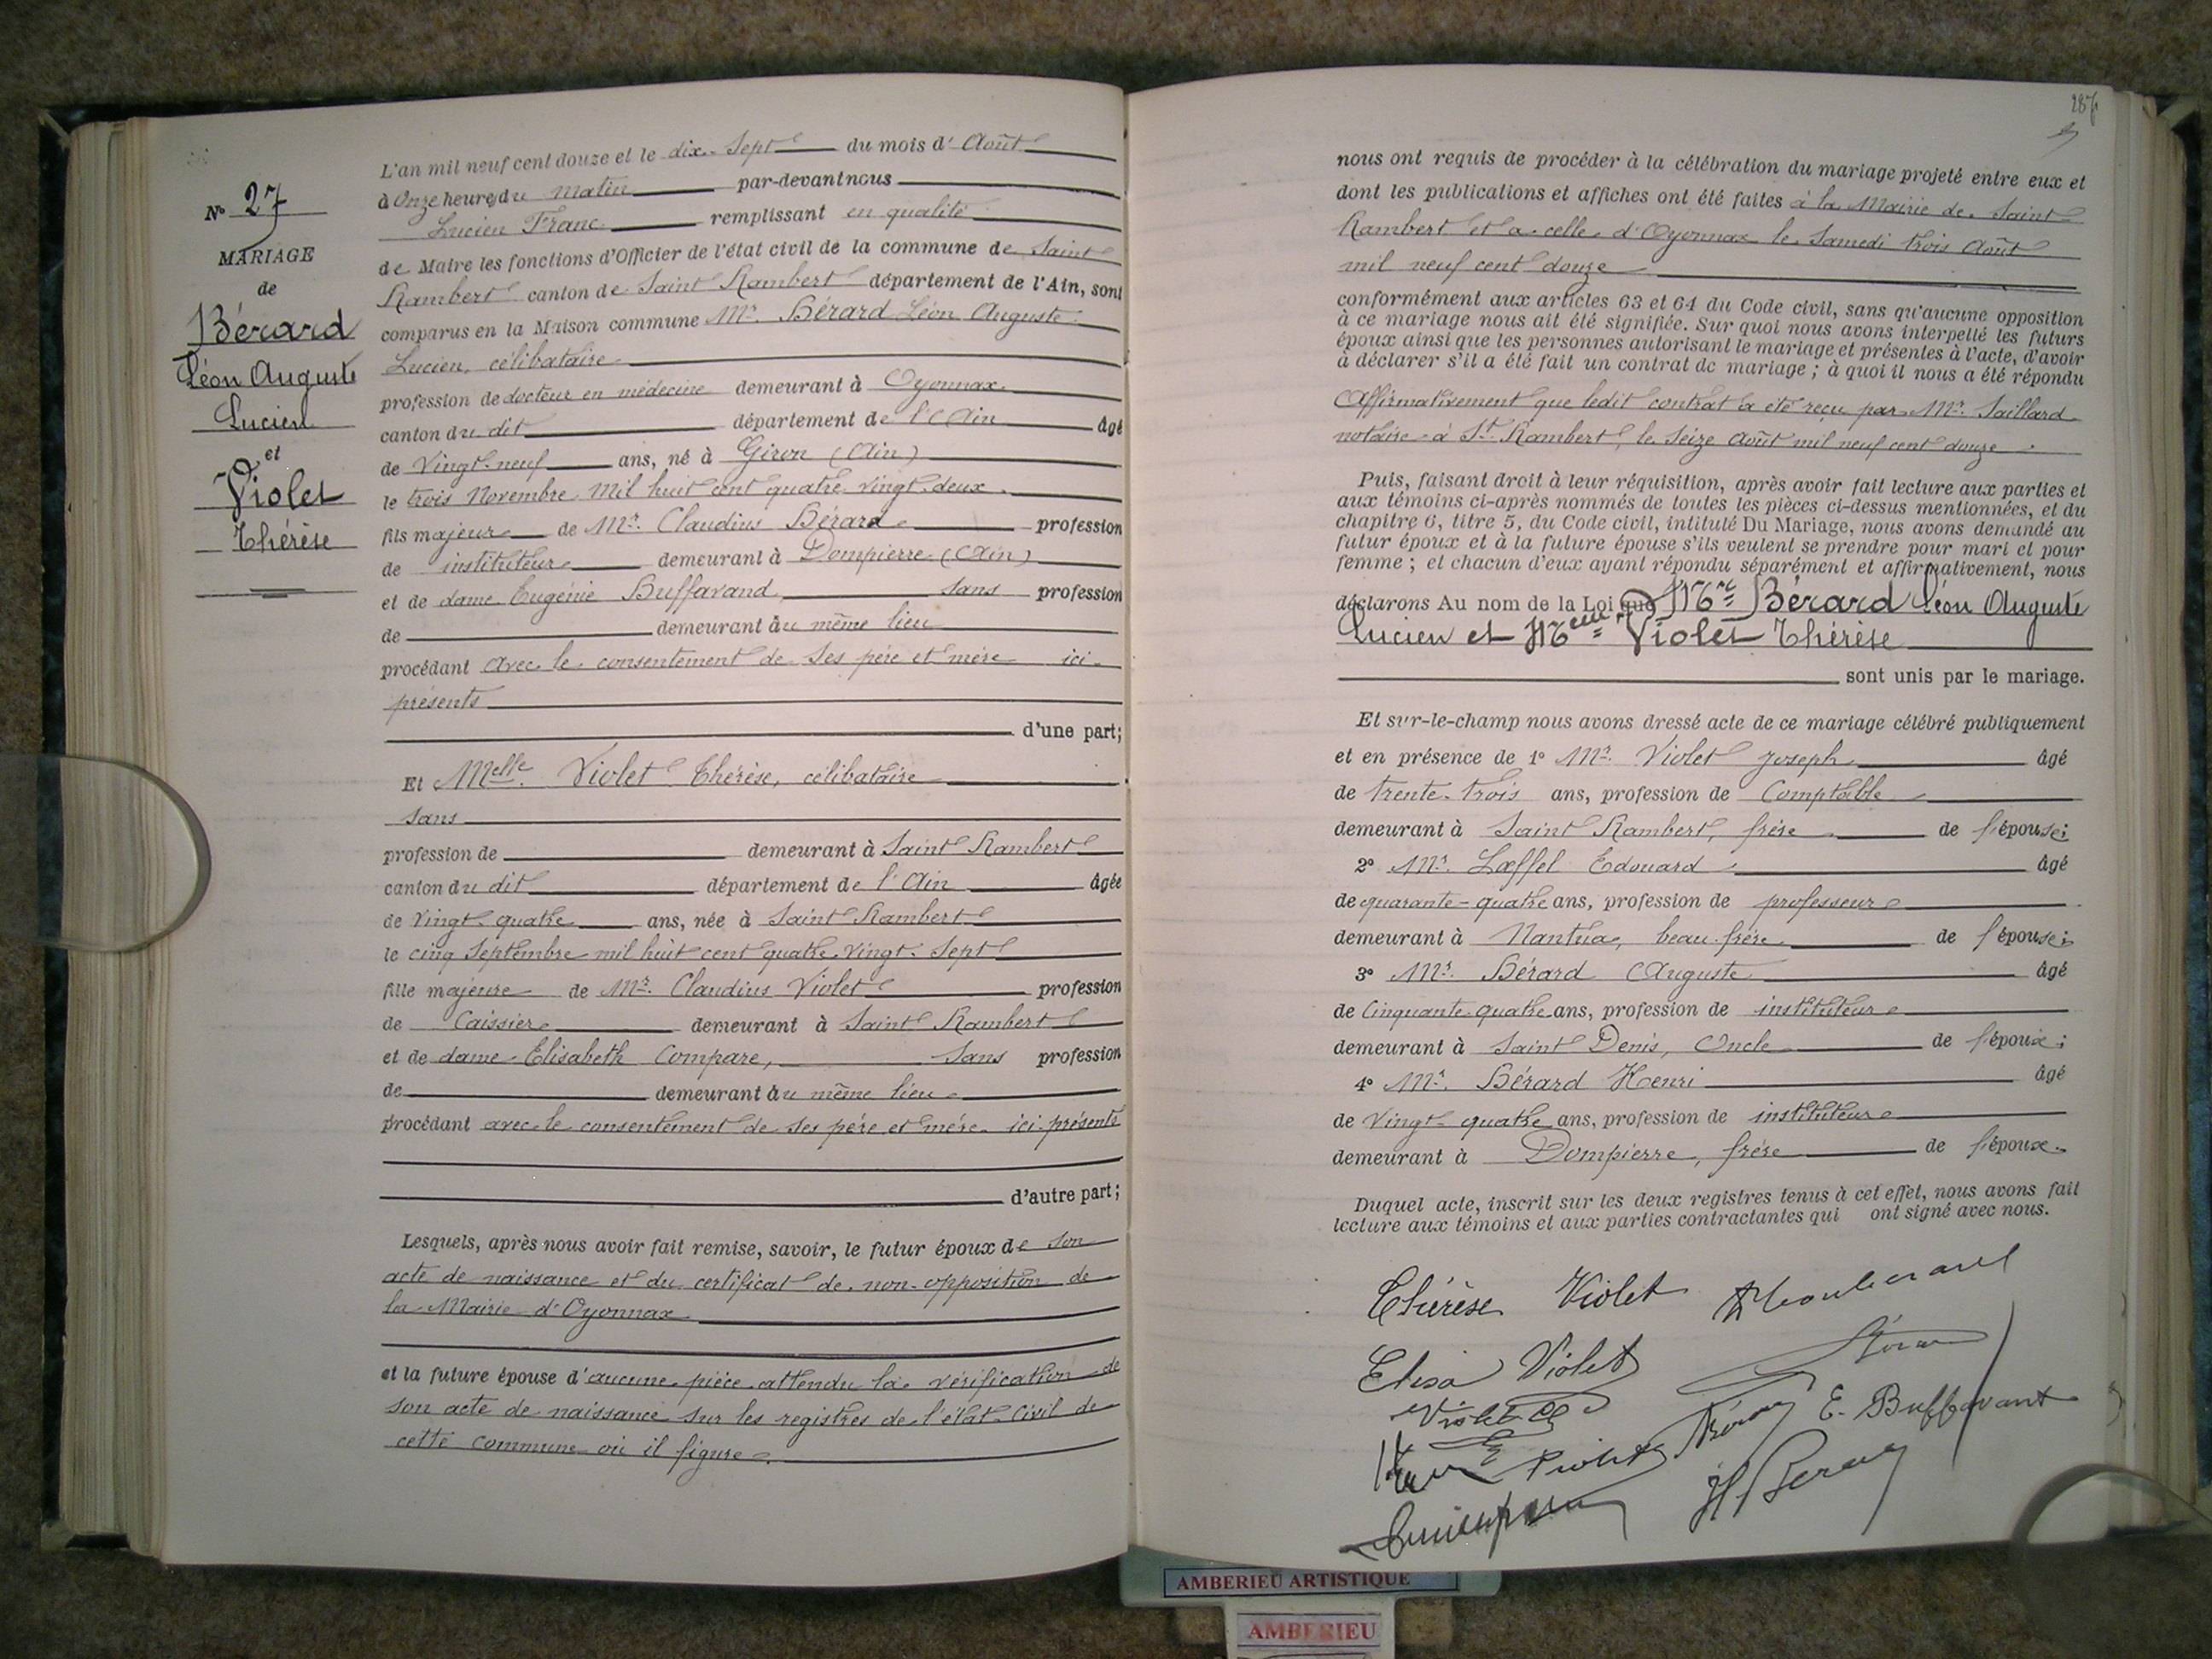 N° 27
MARIAGE
de
Bérard
Léon Auguste
Lucien
et
Violet
Thérèse
L'an mil neuf cent douze et le dix-sept du mois d'Août
à Onze heures du matin par-devant nous
Lucien Franc remplissant en qualité
de Maire les fonctions d'Officier de l'état civil de la commune de Saint
Rambert canton de Saint Rambert département de l'Ain, sont
comparus en la Maison commune Mr. Bérard Léon Auguste
Lucien, célibataire
profession de docteur en médecine demeurant à Oyonnax
canton du dit département de l'Ain âgé
de vingt-neuf ans, né à Giron (Ain)
le trois Novembre mil huit cent quatre-vingt-deux
fils majeur de Mr. Claudius Bérard profession
de instituteur demeurant à Dompierre (Ain)
et de dame Eugénie Buffavand sans profession
de demeurant au même lieu
procédant avec le consentement de ses père et mère ici-
présents
d'une part;
Et Melle. Violet Thérèse, célibataire
sans
profession de demeurant à Saint Rambert
canton du dit département de l'Ain âgée
de vingt-quatre ans, née à Saint Rambert
le cinq Septembre mil huit cent quatre-vingt-sept
fille majeure de Mr. Claudius Violet profession
de Caissier demeurant à Saint Rambert
et de dame Elisabeth Compare, sans profession
de demeurant au même lieu
procédant avec le consentement de ses père et mère ici présents
d'autre part;
Lesquels, après nous avoir fait remise, savoir, le futur époux de son
acte de naissance et du certificat de non-opposition de
la Mairie d'Oyonnax
et la future épouse d'aucune pièce attendu la vérification de
son acte de naissance sur les registres de l'état-civil de
cette commune où il figure.
287
nous ont requis de procéder à la célébration du mariage projeté entre eux et
dont les publications et affiches ont été faites à la Mairie de Saint
Rambert et à celle d'Oyonnax le Samedi trois Août
mil neuf cent douze
conformément aux articles 63 et 64 du Code civil, sans qu'aucune opposition
à ce mariage nous ait été signifiée. Sur quoi nous avons interpellé les futurs
époux ainsi que les personnes autorisant le mariage et présentes à l'acte, d'avoir
à déclarer s'il a été fait un contrat de mariage ; à quoi il nous a été répondu
Affirmativement que ledit contrat a été reçu par Mr. Saillard
notaire à St. Rambert, le seize Août mil neuf cent douze.
Puis, faisant droit à leur réquisition, après avoir fait lecture aux parties et
aux témoins ci-après nommés de toutes les pièces ci-dessus mentionnées, et du
chapitre 6, titre 5, du Code civil, intitulé Du Mariage, nous avons demandé au
futur époux et à la future épouse s'ils veulent se prendre pour mari et pour
femme ; et chacun d'eux ayant répondu séparément et affirmativement, nous
déclarons Au nom de la Loi que Mr. Bérard Léon Auguste
Lucien et Melle Violet Thérèse
sont unis par le mariage.
Et sur-le-champ nous avons dressé acte de ce mariage célébré publiquement
et en présence de 1° Mr. Violet Joseph âgé
de trente-trois ans, profession de Comptable
demeurant à Saint Rambert, frère de l'épouse;
2° Mr. Lœffel Edouard âgé
de quarante-quatre ans, profession de professeur
demeurant à Nantua, beau-frère de l'épouse;
3° Mr. Bérard Auguste âgé
de Cinquante-quatre ans, profession de instituteur
demeurant à Saint Denis, Oncle de l'époux;
4° Mr. Bérard Henri âgé
de vingt-quatre ans, profession de instituteur
demeurant à Dompierre, frère de l'époux.
Duquel acte, inscrit sur les deux registres tenus à cet effet, nous avons fait
lecture aux témoins et aux parties contractantes qui ont signé avec nous.
Thérèse Violet
Elisa Violet
Violet Cl
E. Buffavant
Violet
H. Berard
AMBERIEU ARTISTIQUE
AMBERIEU